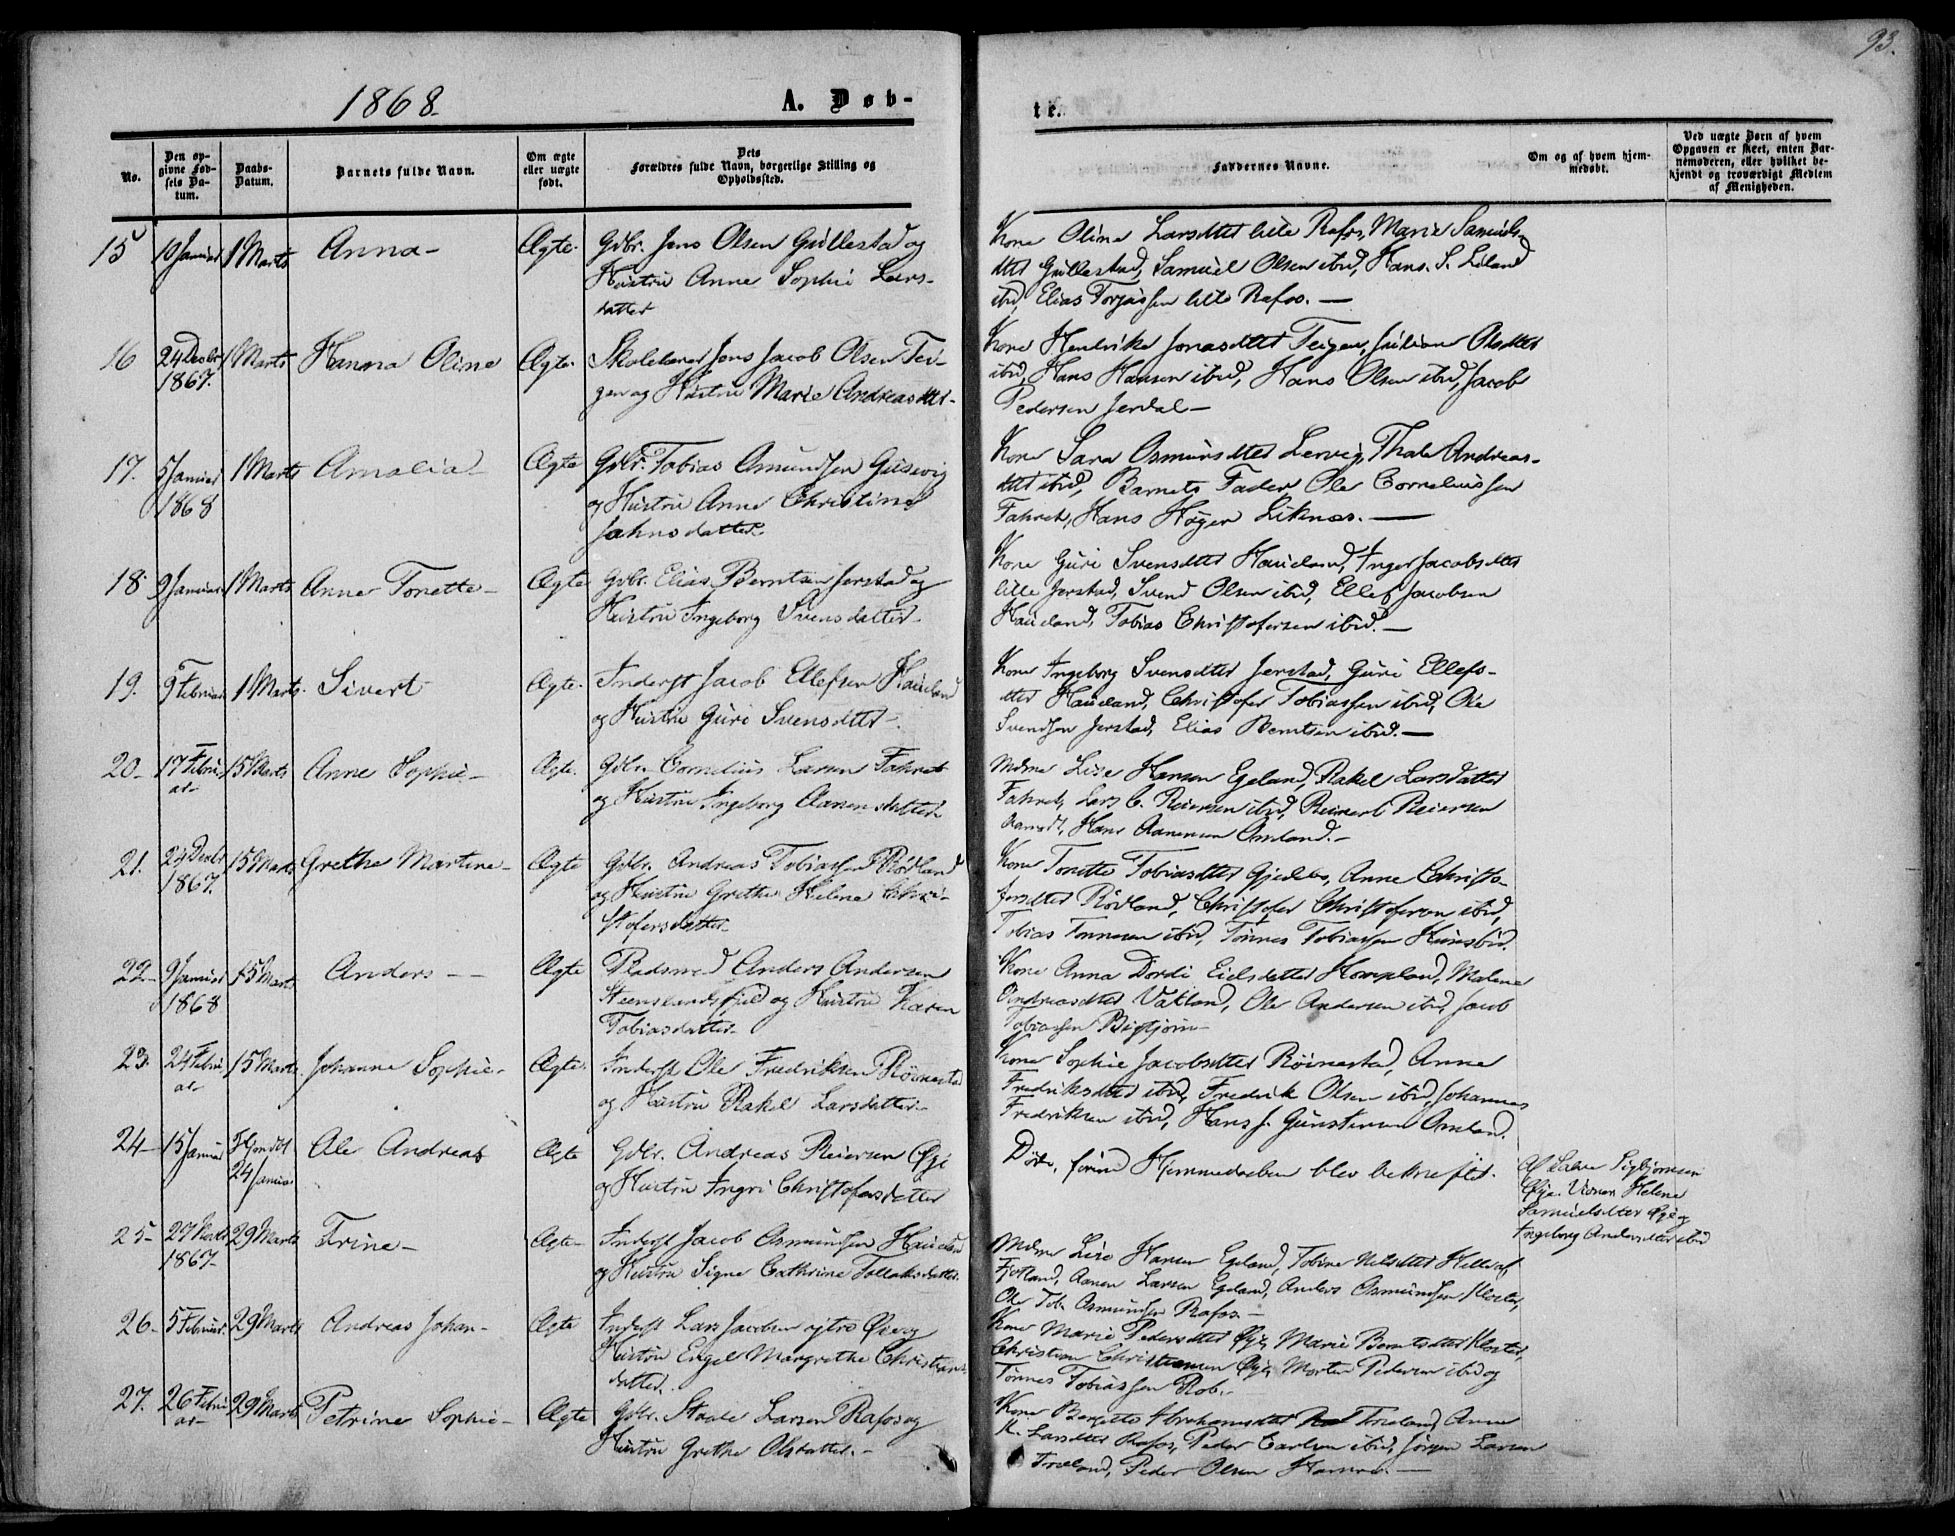 1868.
A. Døb-
te.
93.
No.
Den op-
givne Fød-
sels Da-
tum.
Daabs-
Datum.
Barnets fulde Navn.
Om ægte
eller uægte
født.
Dets
Forældres fulde Navn, borgerlige Stilling og
Opholdssted.
Faddernes Navne.
Om og af hvem hjem-
medøbt.
Ved uægte Børn af hvem
Opgaven er skeet, enten Bar-
nemoderen, eller hvilket be-
kjendt og troværdigt Medlem
af Menigheden.
15 10 Januar 1 Marts Anna- Ægte. Gdbr. Jens Olsen Gullestad og
Hustru Anne Sophie Lars-
datter
Kone Oline Larsdtter lille Rafos, Marie Samuels-
dtter Gullestad, Samuel Olsen ibid, Hans. S. Eiland
ibid, Elias Torjussen lille Rafos. —
16 24 Decbr 1867. 1 Marts Hanna Oline Ægte. Skolelærer Jens Jacob Olsen Tei-
gen og Hustru Marie Andreasdtter-
Kone Hendrikke Jonasdtter Teigen, Juliane Olsdtter
ibid, Hans Hansen ibid, Hans Olsen ibid, Jacob
Pedersen Jerdal —
17. 5 Januar 1868 1 Marts Amalia- Ægte Gdbr. Tobias Omundsen Gusevig
og Hustru Anne Christine
Jahnsdatter.
Kone Sara Osmundsdtter Lervig, Thale Andreas-
dtter ibid, Barnets Fader, Ole Corneliussen
Fahret, Hans Høyer Liknæs. —
18. 9 Januar 1 Marts Anne Tonette- Ægte Gdbr. Elias Berntsen Jerstad og
Hustru Ingeborg Svensdatter.
Kone Guri Svensdtter Haueland, Inger Jacobsdtter
lille Jerstad, Svend Olsen ibid, Ellef Jacobsen
Haueland, Tobias Christofersen ibid. —
19. 9 Februar 1 Marts. Sivert Ægte. Inderst Jacob Ellefsen Haueland
og Hustru Guri Svensdtter.
Kone Ingeborg Svensdtter Jerstad, Guri Ellefs-
dtter Haueland, Christofer Tobiassen ibid, Ole
Svendsen Jerstad, Elias Berntsen ibid. —
20- 17 Febru-
ar- 15 Marts Anne Sophie- Ægte. Gdbr. Cornelius Larsen Fahret
og Hustru Ingeborg Aanensdatter.
Mdme Lise Hansen Egeland, Rakel Larsdatter
Fahret, Lars C. Reiersen ibid, Reinert Reiersen
Aamodt, Hans Aanensen Omland. -
21. 24 Decbr 1867. 15 Marts Grethe Martine- Ægte Gdbr. Andreas Tobiassen Rødland
og Hustru Grethe Helene Chri-
stofersdatter.
Kone Tonette Tobiasdtter Gjedebo, Anne Christo-
fersdtter Rødland, Christofer Christofersen ibid,
Tobias Tønnesen ibid, Tønnes Tobiassen Hunsbed.
22- 9 Januar 1868 15 Marts Anders - - Ægte Pladsmd Anders Andersen
Steenslandsfjeld og Hustru Karen
Tobiasdatter.
Kone Anna Dordi Eielsdatter Kvepland, Malene
Andreasdtter Vatland, Ole Andersen ibid, Jacob
Tobiassen Birkjørn -
23. 24 Febru-
ar- 15 Marts. Johanne Sophie- Ægte. Inderst Ole Fredriksen Røinestad
og Hustru Rakel Larsdatter-
Kone Sophie Jacobsdtter Røinestad, Anne
Fredriksdtter ibid, Fredrik Olsen ibid, Johannes
Fredriksen ibid, Hans J. Gunstensen Omland.
24- 15 Januar Hjemdbt
24 Januar Ole Andreas Ægte Gdbr. Andreas Reiersen Øye
og Hustru Ingri Christofersdatter
Døde, førend Hjemmedaaben blev bekræftet.
Af Salve Sigbjørnsen
Øye. Vidner Helene
Samuelsdtter Øye og
Ingeborg Andersdtter ibid
25- 27 Marts 1867- 29 Marts Trine- Ægte- Inderst Jacob Osmundsen Haueland
og Hustru Signe Cathrine Tollaksdatter.
Mdme Lise Hansen Egeland, Tobine Nilsdtter Helle af
Fjotland, Aanen Larsen Egeland, Anders Osmundsen Kloster,
Ole Tob. Osmundsen Rafos -
26- 5 Februar. 29 Marts Andreas Johan- Ægte Inderst Lars Jacobsen ytre Øie og
Hustru Engel Margrethe Christians-
datter.
Kone Marie Pedersdtter Øye, Marie Berntsdtter Kloster,
Christian Christiansen Øye, Morten Pedersen ibid og
Tønnes Tobiassen Rob. -
27. 26 Febru-
ar- 29 Marts Petrine Sophie- Ægte Gdbr. Staale Larsen Rafos og
Hustru Grethe Olsdatter. -
Kone Berjitte Abrahamsdtter Træland, Anne
K. Larsdtter Rafos, Peder Carlsen ibid, Jørgen Larsen
Træland, Peder Olsen Hamre. —